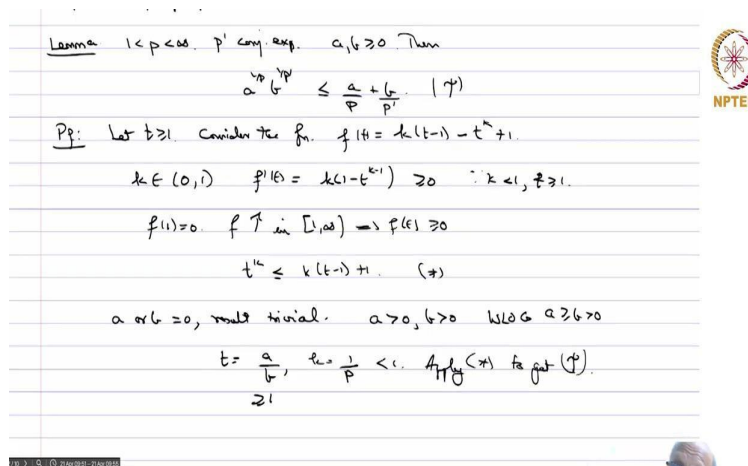 Lemma 1<p<∞. p' conj. exp. a,b≥0. Then
a^{1/p} b^{1/p'} ≤ a/p + b/p'. (†)
NPTE
Pf: Let t≥1. Consider the fn. f(t) = k(t-1) - t^k + 1.
k ∈ (0,1) f'(t) = k(1-t^{k-1}) ≥0 ∵ k<1, t≥1.
f(1)=0. f ↑ in [1,∞) → f(t) ≥0
t^k ≤ k(t-1)+1. (*)
a or b =0, result trivial. a>0, b>0 WLOG a≥b>0
t= a/b, k= 1/p <1. Apply (*) to get (†).
≥1
21 Apr 09:51 - 21 Apr 09:55